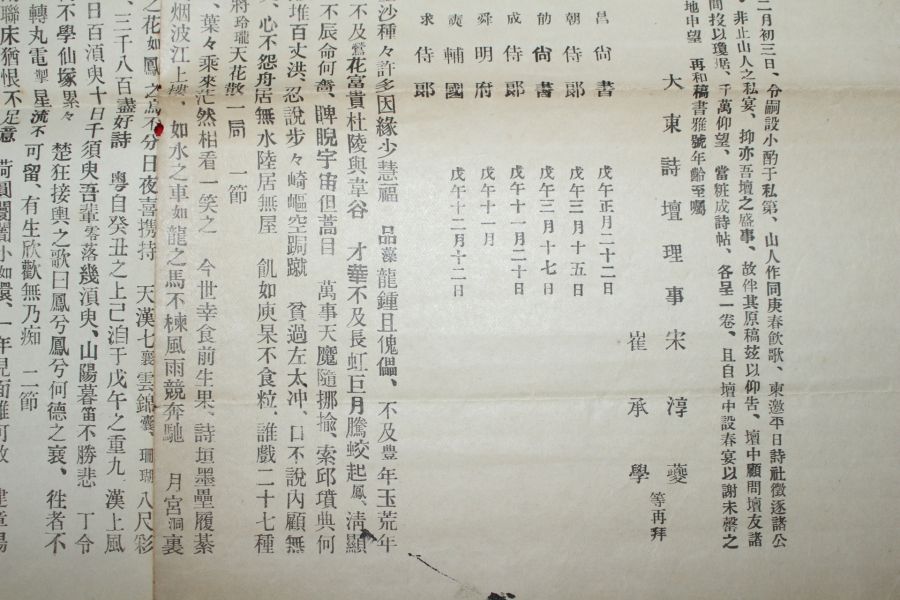 二月初三日、分嗣設小酌于私第、山人作同庚春飲歌、東邀平日詩社徵逐諸公
非止山人之私宴、抑亦吾壇之盛事、故伴其原稿玆以仰吿、壇中顧問壇友諸
間投以瓊琚、千萬仰望、當粧成詩帖、各呈一卷、且自壇中設春宴以謝未罄之
地中望 再和稿書雅號年齡至囑
大東詩壇理事宋淳夔
崔承學 等再拜
昌尙書 戊午正月二十二日
朝侍郞 戊午三月十五日
勛尙書 戊午三月十七日
成侍郞 戊午十一月二十日
舜明府 戊午十一月
奭輔國 戊午十二月十二日
求侍郞
沙種々許多因緣少慧福 品藻龍鍾且傀儡、不及豊年玉荒年
不及鶯花富貴杜陵與韋谷 才華不及長虹巨月騰蛟起鳳、淸顯
不辰命何奇、睥睨宇宙但蒿目 萬事天魔隨挪揄、索邱墳典何
堆百丈洪、忍說步々崎嶇空跼蹴 貧過左太冲、口不說內顧無
心不怨舟居無水陸居無屋 飢如庾杲不食粒、誰戲二十七種
將玲瓏天花散一局 一節
葉々乘來茫然相看一笑之 今世幸食前生果、詩垣墨壘履綦
烟波江上樓、如水之車如龍之馬不楝風雨競奔馳 月宮洞裏
之花如鳳之鳥不分日夜喜携持 天漢七襄雲錦囊、珊瑚八尺彩
三千八百盡好詩 粤自癸丑之上已洎于戊午之重九、漢上風
日百湏臾十日千須臾吾輩零落幾湏臾、山陽暮笛不勝悲 丁令
不學仙塚累々 楚狂接輿之歌曰鳳兮鳳兮何德之衰、徃者不
轉丸電掣星流不可留、有生欣歡無乃痴 二節
聯床猶恨不足意